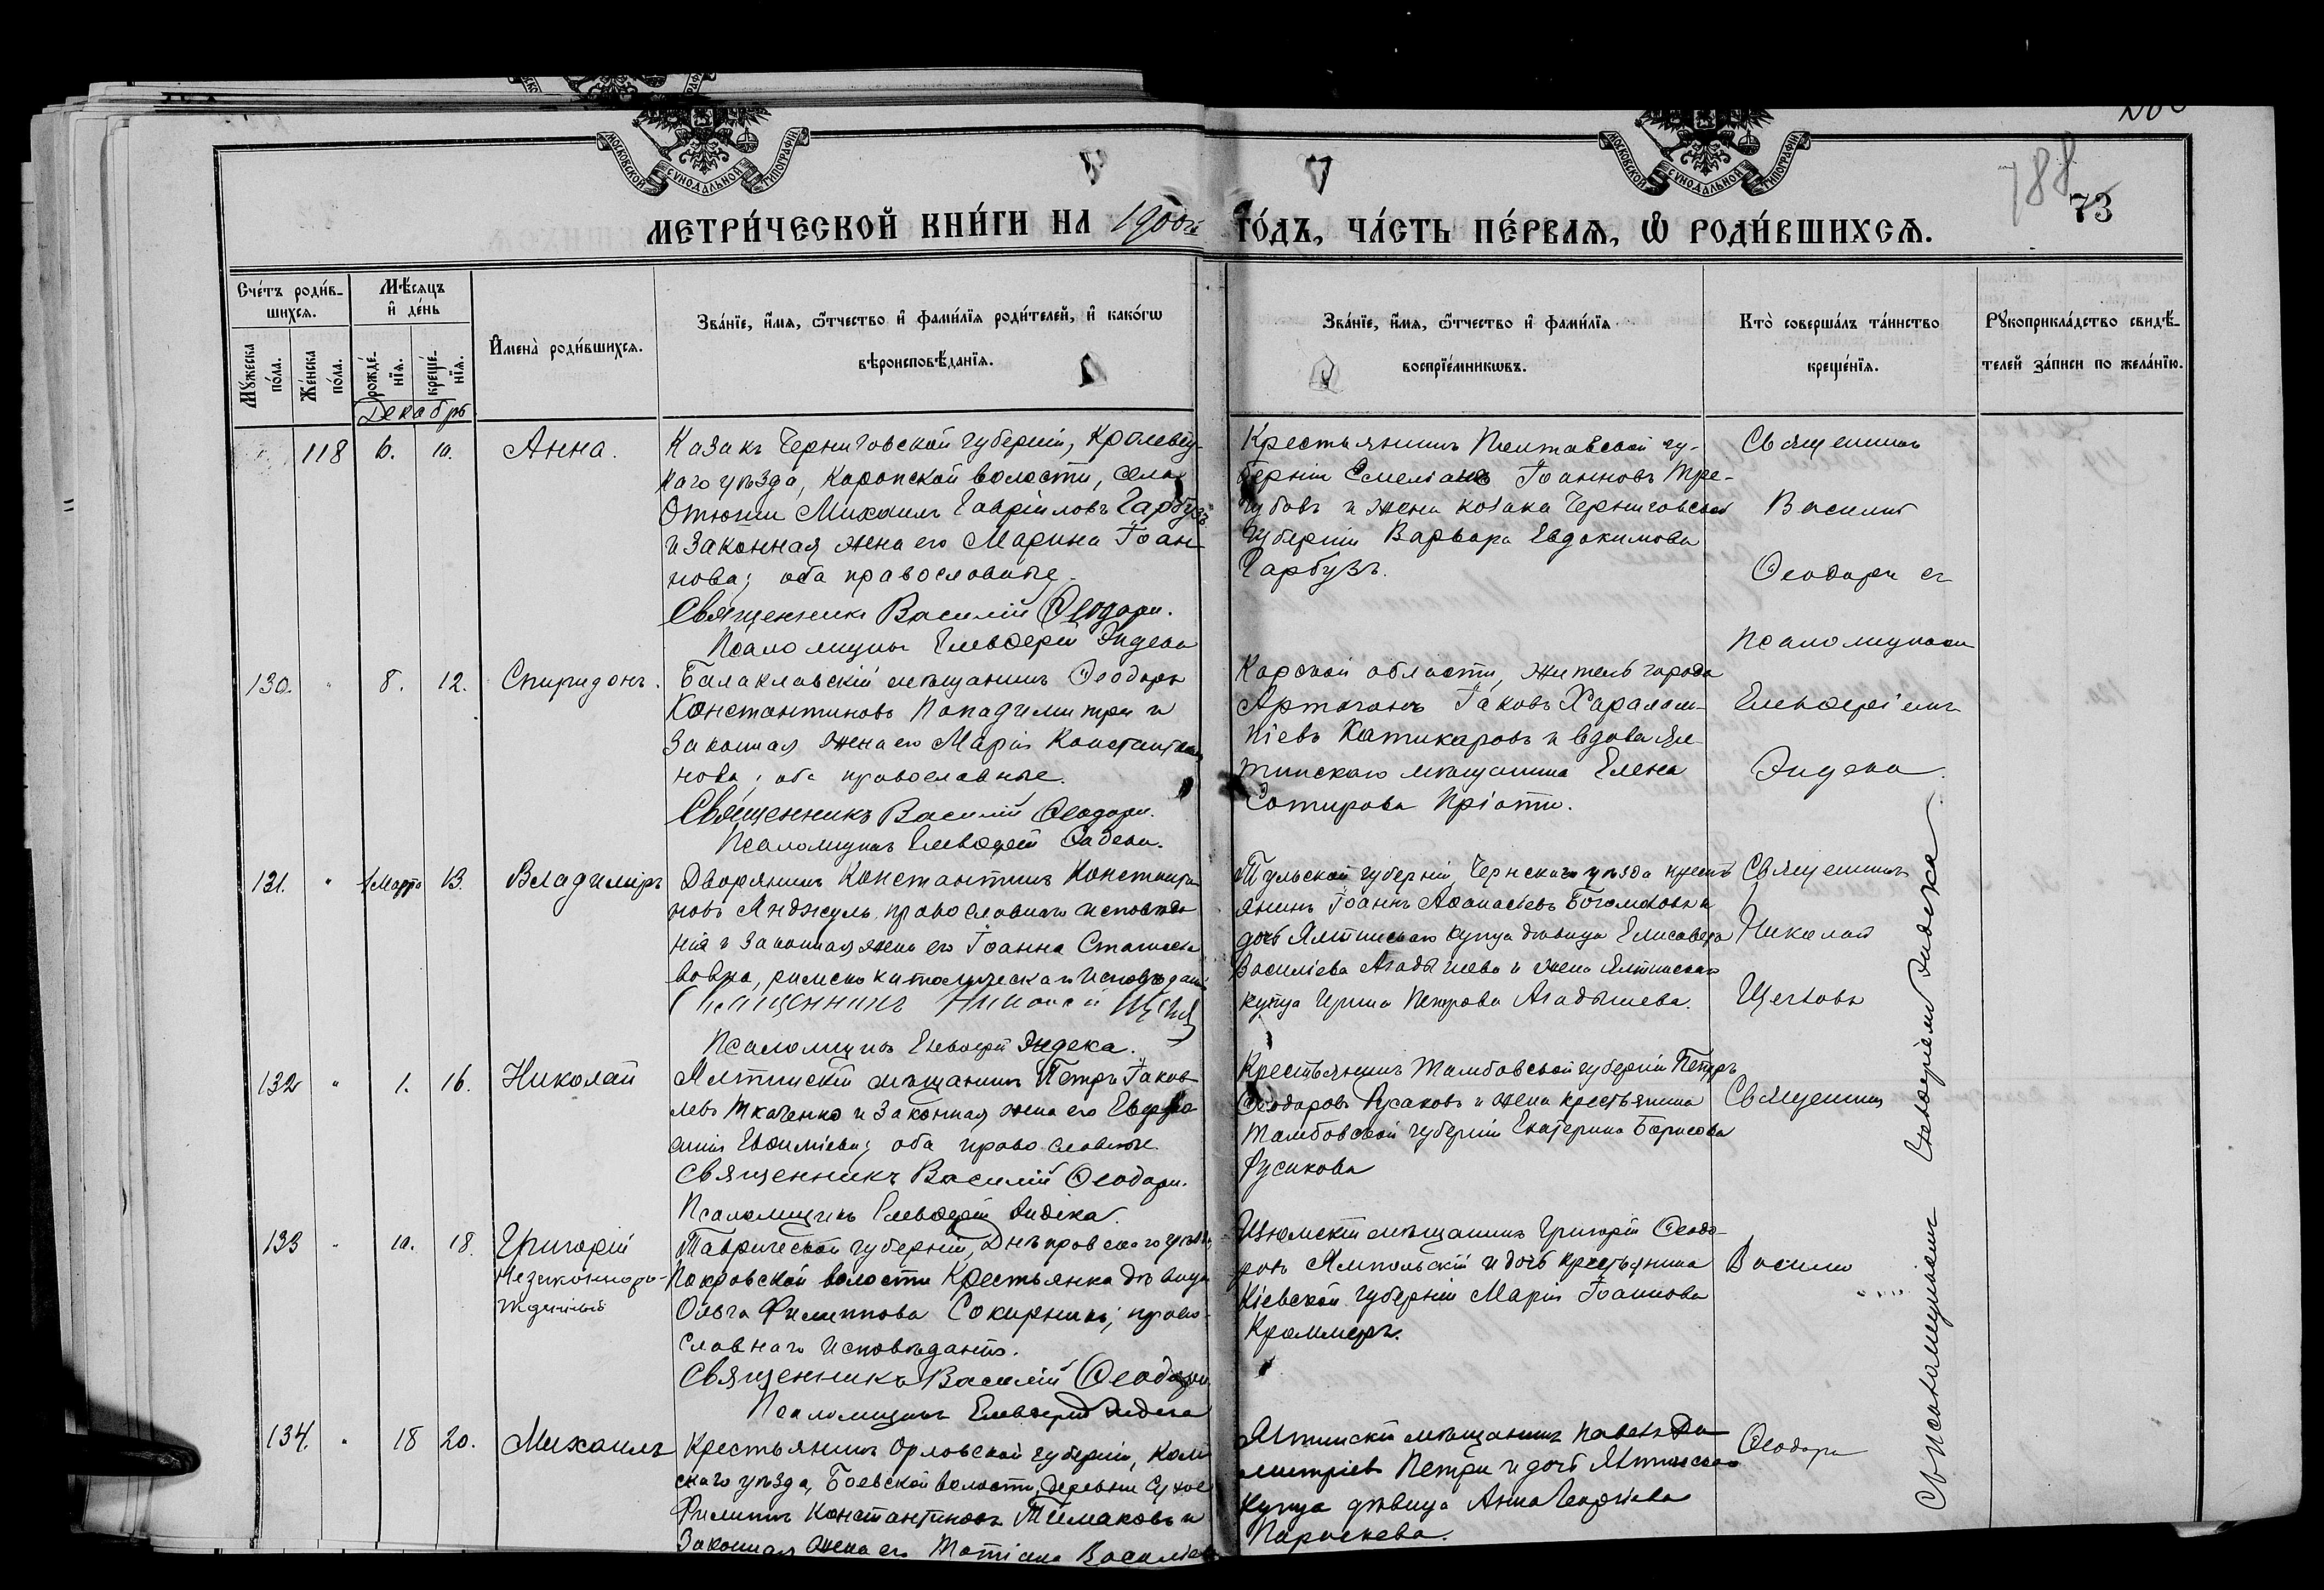 МОСКОВСКОЙ СѴНОДАЛЬНОЙ ТИПОГРАФІИ
МОСКОВСКОЙ СѴНОДАЛЬНОЙ ТИПОГРАФІИ
788
73
МЕТРИ́ЧЕСКОЙ КНИ́ГИ НА 1900й ГО́ДЪ, ЧА́СТЬ ПЕ́РВАѦ, Ѽ РОДИ́ВШИХСѦ.
Сче́тъ роди́в-
шихсѧ.
Мꙋ́жеска по́ла.
Же́нска по́ла.
Мѣ́сѧцъ
и҆ де́нь
рожде́-
нїѧ.
креще́-
нїѧ.
Декабрь
И҆мена̀ роди́вшихсѧ.
Зва́нїе, и҆́мѧ, ѻ҆́тчество и҆ фами́лїѧ роди́телей, и҆ како́гѡ
вѣроисповѣ́данїѧ.
Зва́нїе, и҆́мѧ, ѻ҆́тчество и҆ фами́лїѧ
воспрїе́мникѡвъ.
Кто̀ соверша́лъ та́инство
креще́нїѧ.
Рꙋкоприкла́дство свидѣ́-
телей за́писи по жела́нїю.
118 6. 10. Анна.
Казакъ Черниговской губерніи, Кролевец-
каго уѣзда, Коропской волости, села
Отюши Михаилъ Гавріиловъ Гарбузъ
и законная жена его Марина Іоан-
нова; оба православные.
Священникъ Василій Ѳеодори.
Псаломщикъ Елевѳерій Эндека
Крестьянинъ Полтавской гу-
берніи Емеліанъ Іоанновъ Тре-
губовъ и жена козака Черниговской
губерніи Варвара Евдокимова
Гарбузъ.
Священникъ
Василій
Ѳеодори съ
псаломщикомъ
Елевѳеріемъ
Эндека.
130. " 8. 12. Спиридонъ.
Балаклавскій мѣщанинъ Ѳеодоръ
Константиновъ Пападимитри и
законная жена его Марія Константи-
нова; оба православные.
Священникъ Василій Ѳеодори.
Псаломщикъ Елевѳерій
Карской области, житель города
Артаганъ Іаковъ Харалам-
піевъ Катикаровъ и вдова Ял-
тинскаго мѣщанина Елена
Сотирова Пріоти.
131. " 1 Марта 13. Владиміръ
Дворянинъ Константинъ Константи-
новъ Анджулъ, православнаго исповѣда-
нія и законная жена его Іоанна Станисла-
вовна, римско католическаго исповѣданія
Священникъ Николай
Псаломщикъ Елевѳерій Эндека.
Тульской губерніи, Чернскаго уѣзда кресть-
янинъ Іоаннъ Аѳанасіевъ Богомоловъ и
дочь Ялтинскаго купца дѣвица Елисавета
Василіева Агадышева и жена Ялтинскаго
купца Ирина Петрова Агадышева.
Священникъ
Николай
Щегловъ
132 " 1. 16. Николай
Ялтинскій мѣщанинъ Петръ Іаков-
левъ Ткаченко и законная жена его Евдо-
Евѳиміева; оба православные.
Священникъ Василій Ѳеодори.
Псаломщикъ Елевѳерій Эндека.
Крестьянинъ Тамбовской губерніи Петръ
Ѳеодоровъ Русаковъ и жена крестьянина
Тамбовской губерніи Екатерина Борисова
Русакова
Священникъ
133 " 10. 18. Григорій
Незаконноро-
жденный
Таврической губерніи, Днѣпровскаго уѣзда,
Покровской волости крестьянка дѣвица
Ольга Филиппова Сокирникъ; право-
славнаго исповѣданія.
Священникъ Василій Ѳеодори.
Псаломщикъ Елевѳерій Эндека
Изюмскій мѣщанинъ Григорій Ѳеодо-
ровъ Ямпольскій и дочь крестьянина
Кіевской губерніи Марія Іоаннова
Краммеръ.
Василій
134. " 18 20. Михаилъ
Крестьянинъ Орловской губерніи,
скаго уѣзда, Боевской волости, деревни
Филиппъ Константиновъ Тимаковъ и
законная жена его Татіана Василіева
Ялтинскій мѣщанинъ Павелъ Ди-
митріевъ Петри и дочь Ялтинскаго
купца дѣвица Анна Георгіева
Параскева.
Ѳеодори
Съ псаломщикомъ Елевѳеріемъ Эндека